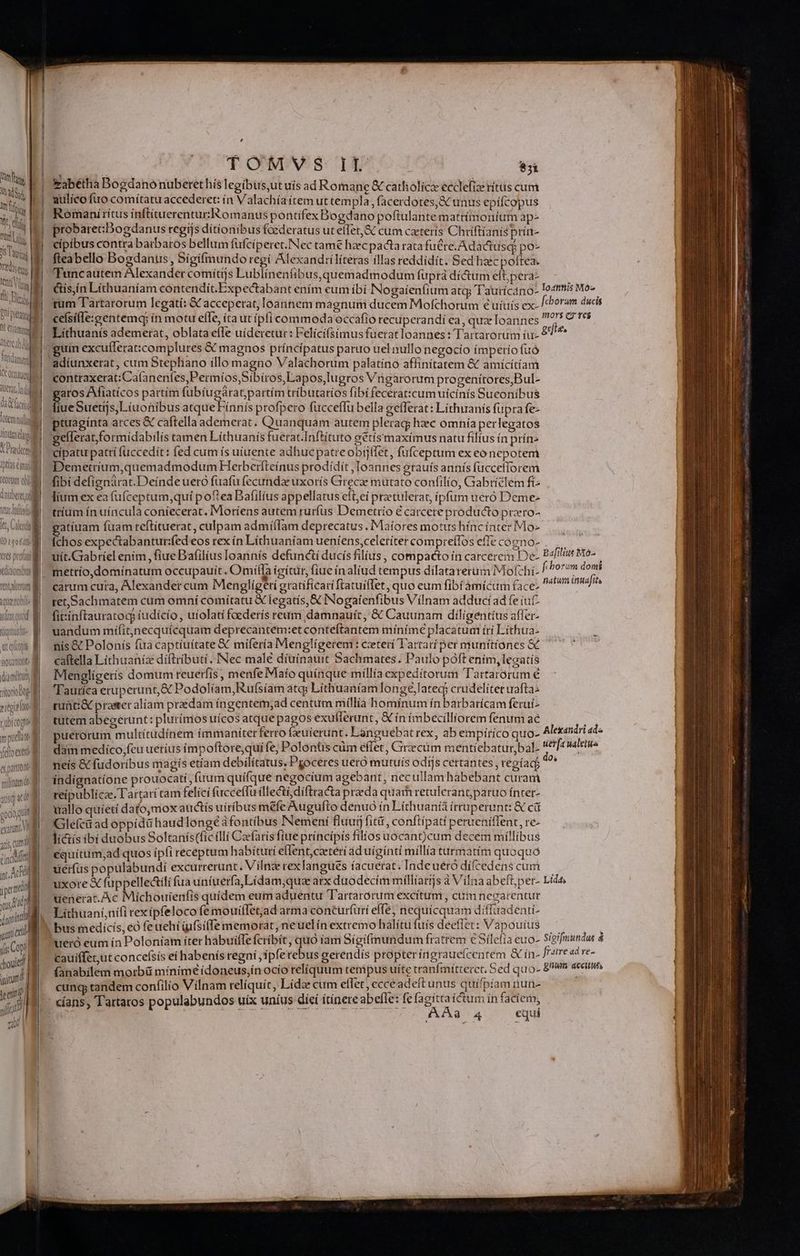 TOMVS II. 831
zabetha Bogdano nuberet his legibus, ut uis ad Romanę & catholicæ ecclesiæ ritus cum
aulico suo comitatu accederet: in Valachia item ut templa, sacerdotes, & unus episcopus
Romani ritus instituerentur: Romanus pontifex Bogdano postulante matrimonium ap-
probaret: Bogdanus regijs ditionibus fœderatus ut esset, & cum cæteris Christianis prin-
cipibus contra barbaros bellum susciperet. Nec tamē hæc pacta rata fuêre. Adactusq; po-
stea bello Bogdanus, Sigismundo regi Alexandri literas illas reddidit. Sed hæc postea.
Tunc autem Alexander comitijs Lublinensibus, quemadmodum suprà dictum est, pera-
ctis, in Lithuaniam contendit. Expectabant enim eum ibi Nogaiensium atq; Tauricano-
rum Tartarorum legati: & acceperat, Ioannem magnum ducem Moschorum è uiuis ex-
cessisse: gentemq; in motu esse, ita ut ipsi commoda occasio recuperandi ea, quæ Ioannes
Lithuanis ademerat, oblata esse uideretur: Felicissimus fuerat Ioannes: Tartarorum iu-
guin excusserat: complures & magnos principatus paruo uel nullo negocio imperio suo
adiunxerat, cum Stephano illo magno Valachorum palatino affinitatem & amicitiam
contraxerat: Casanenses, Permios, Sibiros, Lapos, Iugros Vngarorum progenitores, Bul-
garos Asiaticos partim subiugârat, partim tributarios sibi fecerat: cum uicinis Sueonibus
siue Suetijs, Liuonibus atque Finnis prospero successu bella gesserat: Lithuanis supra se-
ptuaginta arces & castella ademerat. Quanquam autem pleraq; hæc omnia per legatos
gesserat, formidabilis tamen Lithuanis fuerat. Instituto gētis maximus natu filius in prin-
cipatu patri succedit: sed cum is uiuente adhuc patre obijsset, susceptum ex eo nepotem
Demetrium, quemadmodum Herbersteinus prodidit, Ioannes grauis annis successorem
sibi designârat. Deinde uerò suasu secundæ uxoris Græcæ mutato consilio, Gabrielem fi-
lium ex ea susceptum, qui postea Basilius appellatus est, ei prætulerat, ipsum uerò Deme-
trium in uincula coniecerat. Moriens autem rursus Demetrio è carcere producto præro-
gatiuam suam restituerat, culpam admissam deprecatus. Maiores motus hinc inter Mo-
schos expectabantur: sed eos rex in Lithuaniam ueniens, celeriter compressos esse cogno-
uit. Gabriel enim, siue Basilius Ioannis defuncti ducis filius, compacto in carcerem De-
metrio, dominatum occupauit. Omissa igitur, siue in aliud tempus dilata rerum Moschi-
carum cura, Alexander cum Mengligeri gratificari statuisset, quo eum sibi amicum face-
ret, Sachmatem cum omni comitatu & legatis, & Nogaiensibus Vilnam adduci ad se ius-
sit: instauratoq; iudicio, uiolati fœderis reum damnauit, & Cauunam diligentius asser-
uandum misit, necquicquam deprecantem: et contestantem minimè placatum iri Lithua-
nis & Polonis sua captiuitate & miseria Mengligerem: cæteri Tartari per munitiones &
castella Lithuaniæ distributi. Nec malè diuinauit Sachmates. Paulo pòst enim, legatis
Mengligeris domum reuersis, mense Maio quinque millia expeditorum Tartarorum è
Taurica eruperunt, & Podoliam, Russiam atq; Lithuaniam longè, lateq; crudeliter uasta-
runt: & præter aliam prædam ingentem, ad centum millia hominum in barbaricam serui-
tutem abegerunt: plurimos uicos atque pagos exusserunt, & in imbecilliorem senum ac
puerorum multitudinem immaniter ferro sæuierunt. Languebat rex, ab empirico quo-
dam medico, seu uerius impostore, qui se, Polonus cùm esset, Græcum mentiebatur, bal-
neis & sudoribus magis etiam debilitatus. Proceres uerò mutuis odijs certantes, regiaq;
indignatione prouocati, suum quisque negocium agebant, nec ullam habebant curam
reipublicæ. Tartari tam felici successu illecti, distracta præda quam retulerant, paruo inter-
uallo quieti dato, mox auctis uiribus mēse Augusto denuò in Lithuaniā irruperunt: & cū
Glescū ad oppidū haud longè à fontibus Nemeni fluuij sitū, constipati peruenissent, re-
lictis ibi duobus Soltanis (sic illi Cæsaris siue principis filios uocant) cum decem millibus
equitum, ad quos ipsi receptum habituri essent, cæteri ad uiginti millia turmatim quoquò
uersus populabundi excurrerunt. Vilnæ rex languēs iacuerat. Inde uerò discedens cum
uxore & suppellectili sua uniuersa, Lidam, quæ arx duodecim milliarijs à Vilna abest, per-
uenerat. Ac Michouiensis quidem eum aduentu Tartarorum excitum, cum negarentur
Lithuani, nisi rex ipse loco se mouisset, ad arma concursuri esse, nequicquam dissuadenti-
bus medicis, eò se uehi iussisse memorat, ne uel in extremo halitu suis deesset: Vapouius
uerò eum in Poloniam iter habuisse scribit, quò iam Sigismundum fratrem è Silesia euo-
cauisset, ut concessis ei habenis regni, ipse rebus gerendis propter ingrauescentem & in-
sanabilem morbū minimè idoneus, in ocio reliquum tempus uitę transmitteret. Sed quo-
cunq; tandem consilio Vilnam reliquit, Lidæ cum esset, ecce adest unus quispiam nun-
cians, Tartaros populabundos uix unius diei itinere abesse: se sagitta ictum in faciem,
AAa 4 equi
Ioannis Mo-
schorum ducis
mors & res
gestæ.
Basilius Mo-
schorum domi
natum inuasit.
Alexandri ad-
uersa ualetu-
do.
Lida.
Sigismundus à
fratre ad re-
gnum accitus.